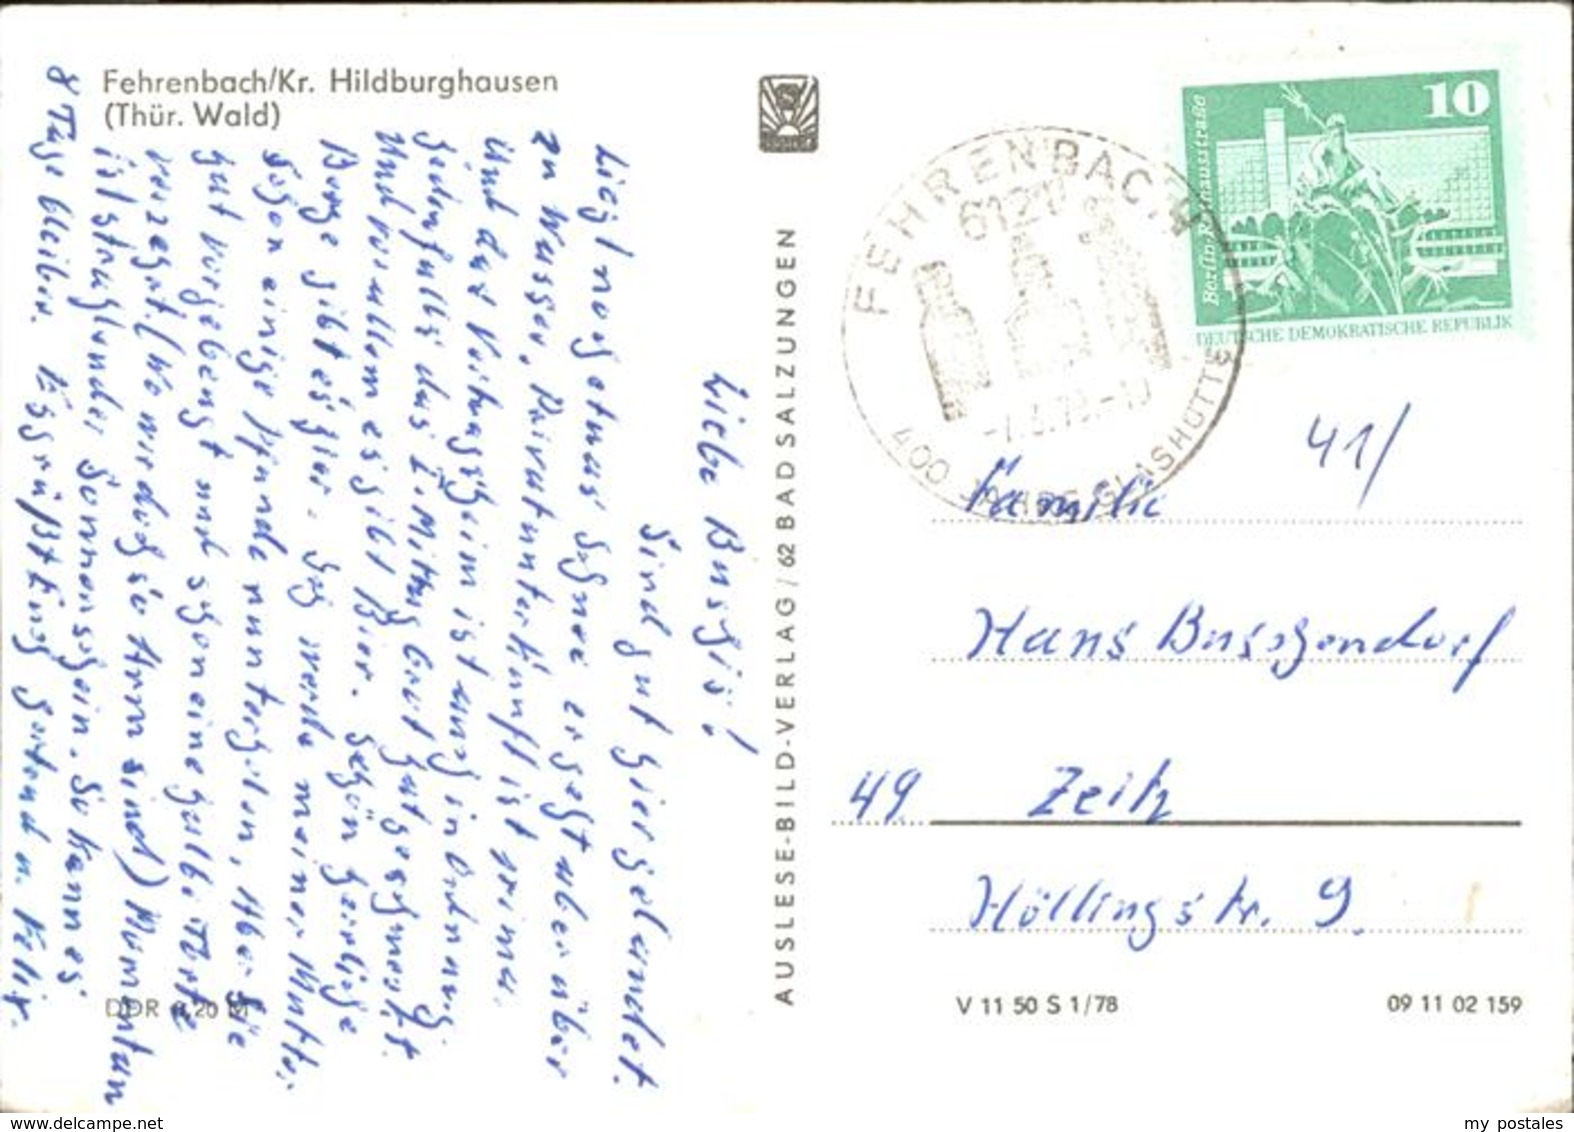 Fehrenbach/Kr. Hildburghausen
(Thür. Wald)
Liebe Buschis!
Sind gut hier gelandet.
Liegt noch etwas Schnee er geht aber über
zu Wasser. Privatunterkunft ist prima.
Und das Vertragsheim ist auch in Ordnung.
Jedenfalls das 1. Mittag hat gut geschmeckt.
Und vor allem es gibt Bier. Schön
Berge gibt es hier. Ich werde meiner Mutter
schon einige Pfunde runterholen, Aber sie
hat vorgebeugt und schon eine halbe Torte
verzehrt. (Wo wir doch so Arm sind) Momentan
ist strahlender Sonnenschein. So kann es
8 Tage bleiben. Es grüßt Euch Gertrud u. Felix.
DDR 0,20 M
AUSLESE-BILD-VERLAG / 62 BAD SALZUNGEN
FEHRENBACH
400 JAHRE GLASHÜTTE
10
Berlin-Rathausstraße
DEUTSCHE DEMOKRATISCHE REPUBLIK
41/
Familie
Hans Buschendorf
49 Zeitz
Höllingstr. 9.
V 11 50 S 1/78
09 11 02 159
my postales